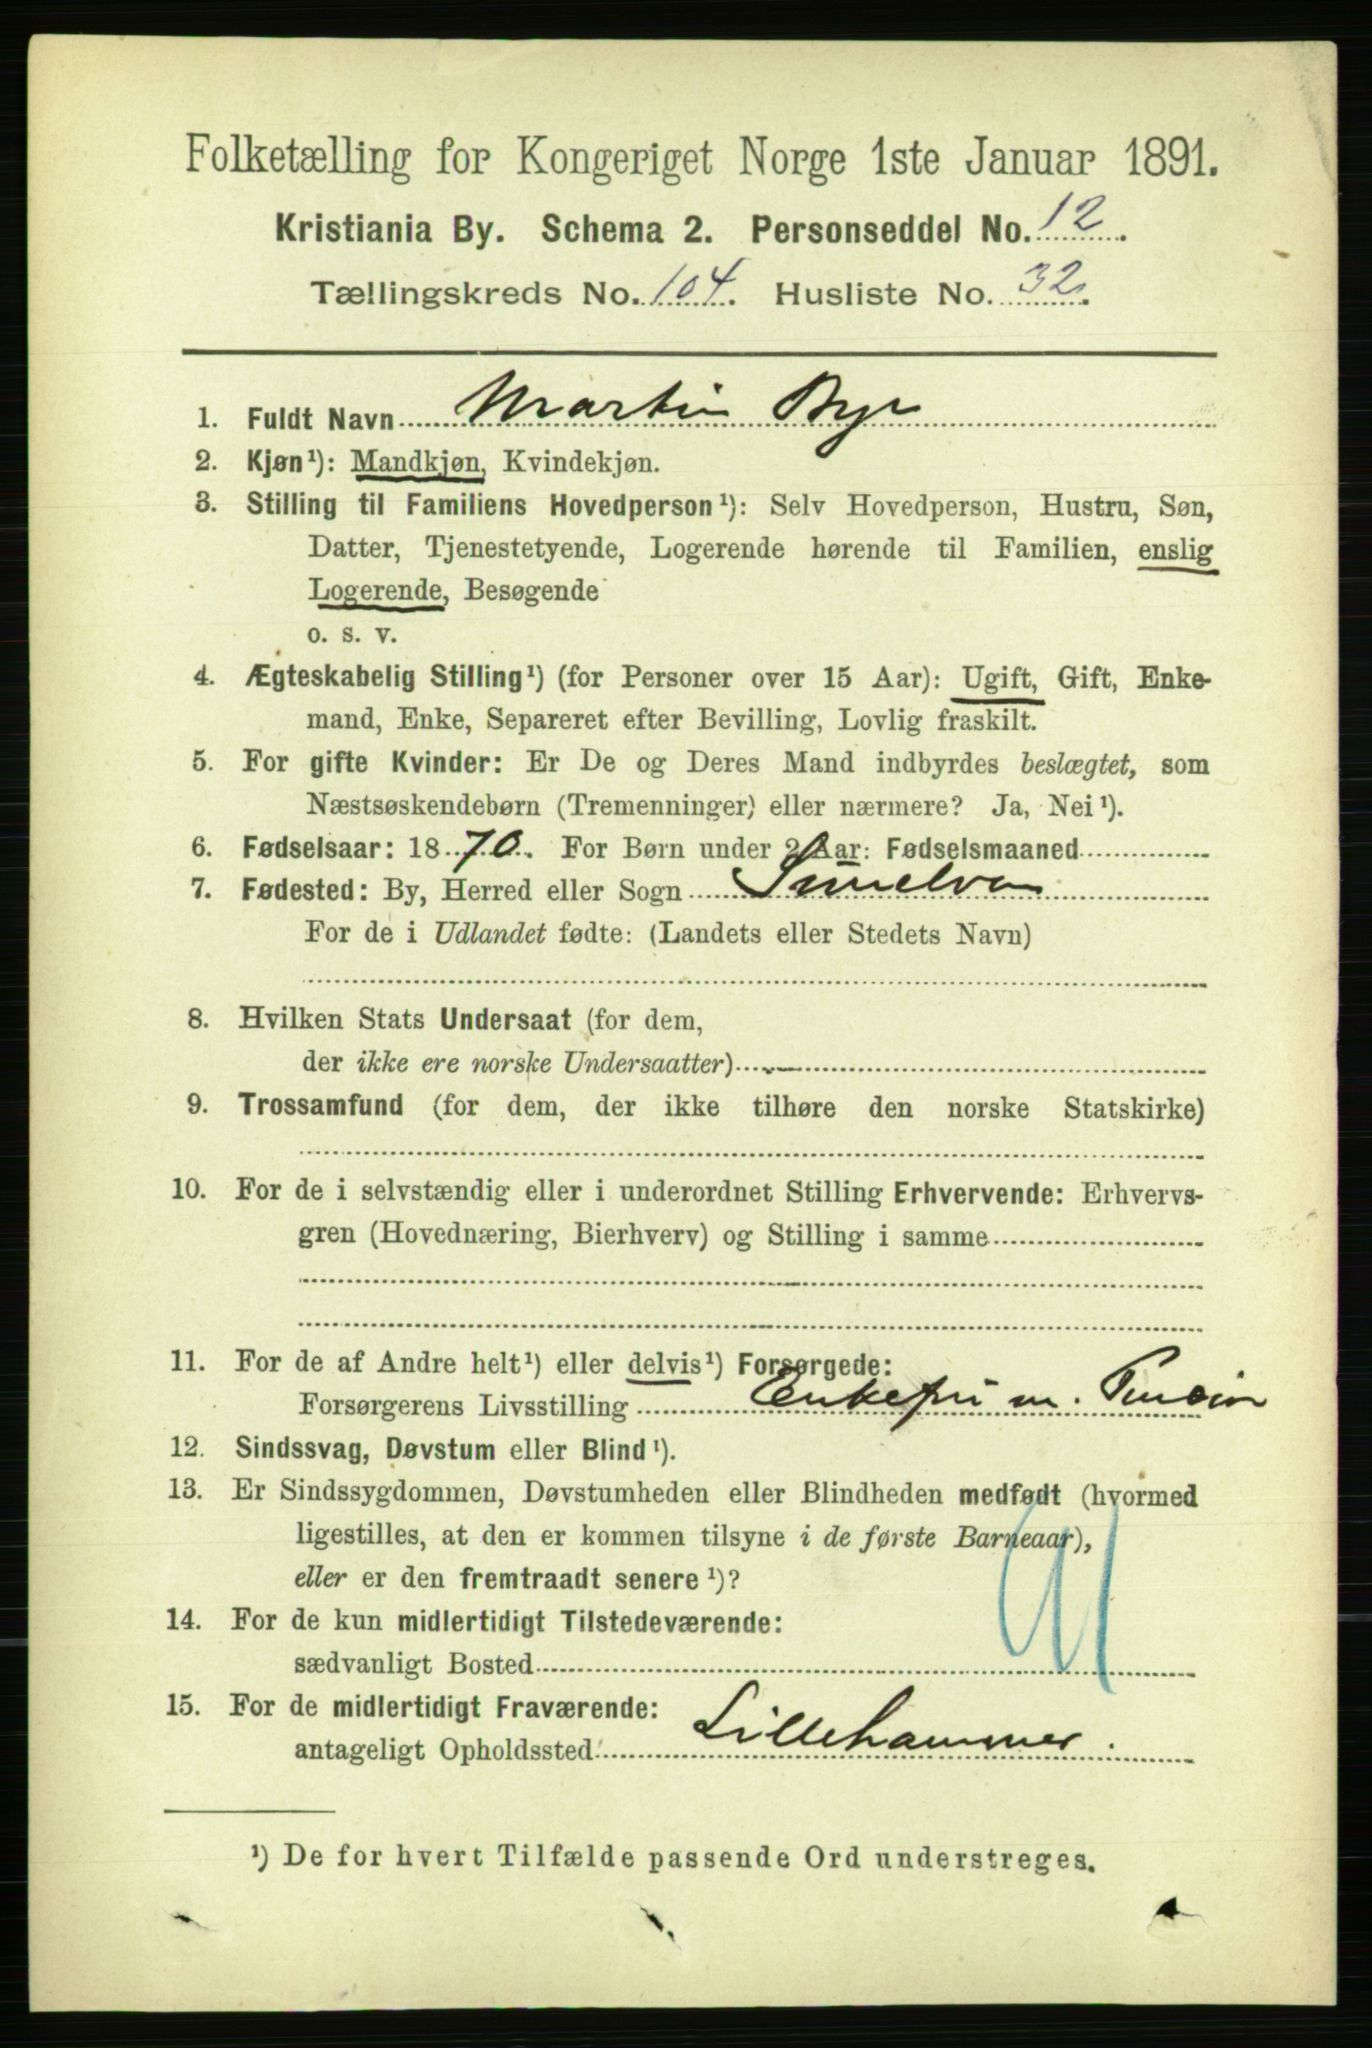 Folketælling for Kongeriget Norge 1ste Januar 1891.
Kristiania By. Schema 2. Personseddel No. 12.
Tællingskreds No. 104. Husliste No. 32.
1. Fuldt Navn Martin Bye
2. Kjøn¹): Mandkjøn, Kvindekjøn.
3. Stilling til Familiens Hovedperson¹): Selv Hovedperson, Hustru, Søn,
Datter, Tjenestetyende, Logerende hørende til Familien, enslig
Logerende, Besøgende
o. s. v.
4. Ægteskabelig Stilling¹) (for Personer over 15 Aar): Ugift, Gift, Enke-
mand, Enke, Separeret efter Bevilling, Lovlig fraskilt.
5. For gifte Kvinder: Er De og Deres Mand indbyrdes beslægtet, som
Næstsøskendebørn (Tremenninger) eller nærmere? Ja, Nei¹).
6. Fødselsaar: 1870. For Børn under 2 Aar: Fødselsmaaned
7. Fødested: By, Herred eller Sogn
For de i Udlandet fødte: (Landets eller Stedets Navn)
8. Hvilken Stats Undersaat (for dem,
der ikke ere norske Undersaatter)
9. Trossamfund (for dem, der ikke tilhøre den norske Statskirke)
10. For de i selvstændig eller i underordnet Stilling Erhvervende: Erhvervs-
gren (Hovednæring, Bierhverv) og Stilling i samme
11. For de af Andre helt¹) eller delvis¹) Forsørgede:
Forsørgerens Livsstilling Enkefru m. Pension
12. Sindssvag, Døvstum eller Blind¹).
13. Er Sindssygdommen, Døvstumheden eller Blindheden medfødt (hvormed
ligestilles, at den er kommen tilsyne i de første Barneaar),
eller er den fremtraadt senere¹)?
14. For de kun midlertidigt Tilstedeværende:
sædvanligt Bosted
15. For de midlertidigt Fraværende:
antageligt Opholdssted Lillehammer.
¹) De for hvert Tilfælde passende Ord understreges.